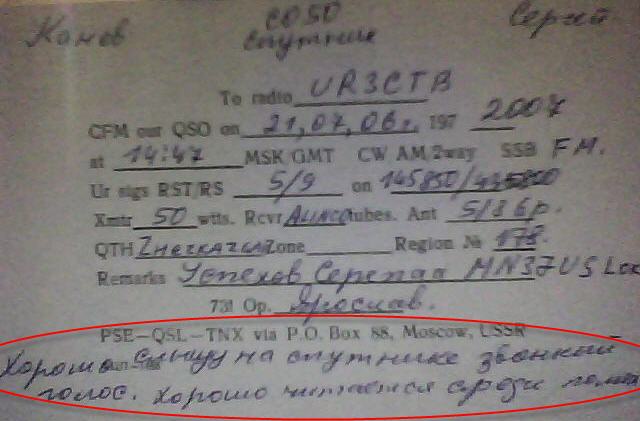 Канев СО50 Сергий
спутник
To radio UR3CTB
CFM our QSO on 21,07,06г. 197 2007
at 14:47 MSK/GMT CW AM/2way SSB FM.
Ur sigs RST/RS 5/9 on 145850/
Xmtr 50 wtts. Rcvr Алинсо tubes. Ant 5/8 Бр.
QTH zone Region № 178.
Remarks Успехов MN37US Loc
731 Op. Ярослав.
PSE—QSL—TNX via P.O. Box 88, Moscow, USSR
Хорошо слышу на спутнике звонкий
голос. Хорошо читается среди